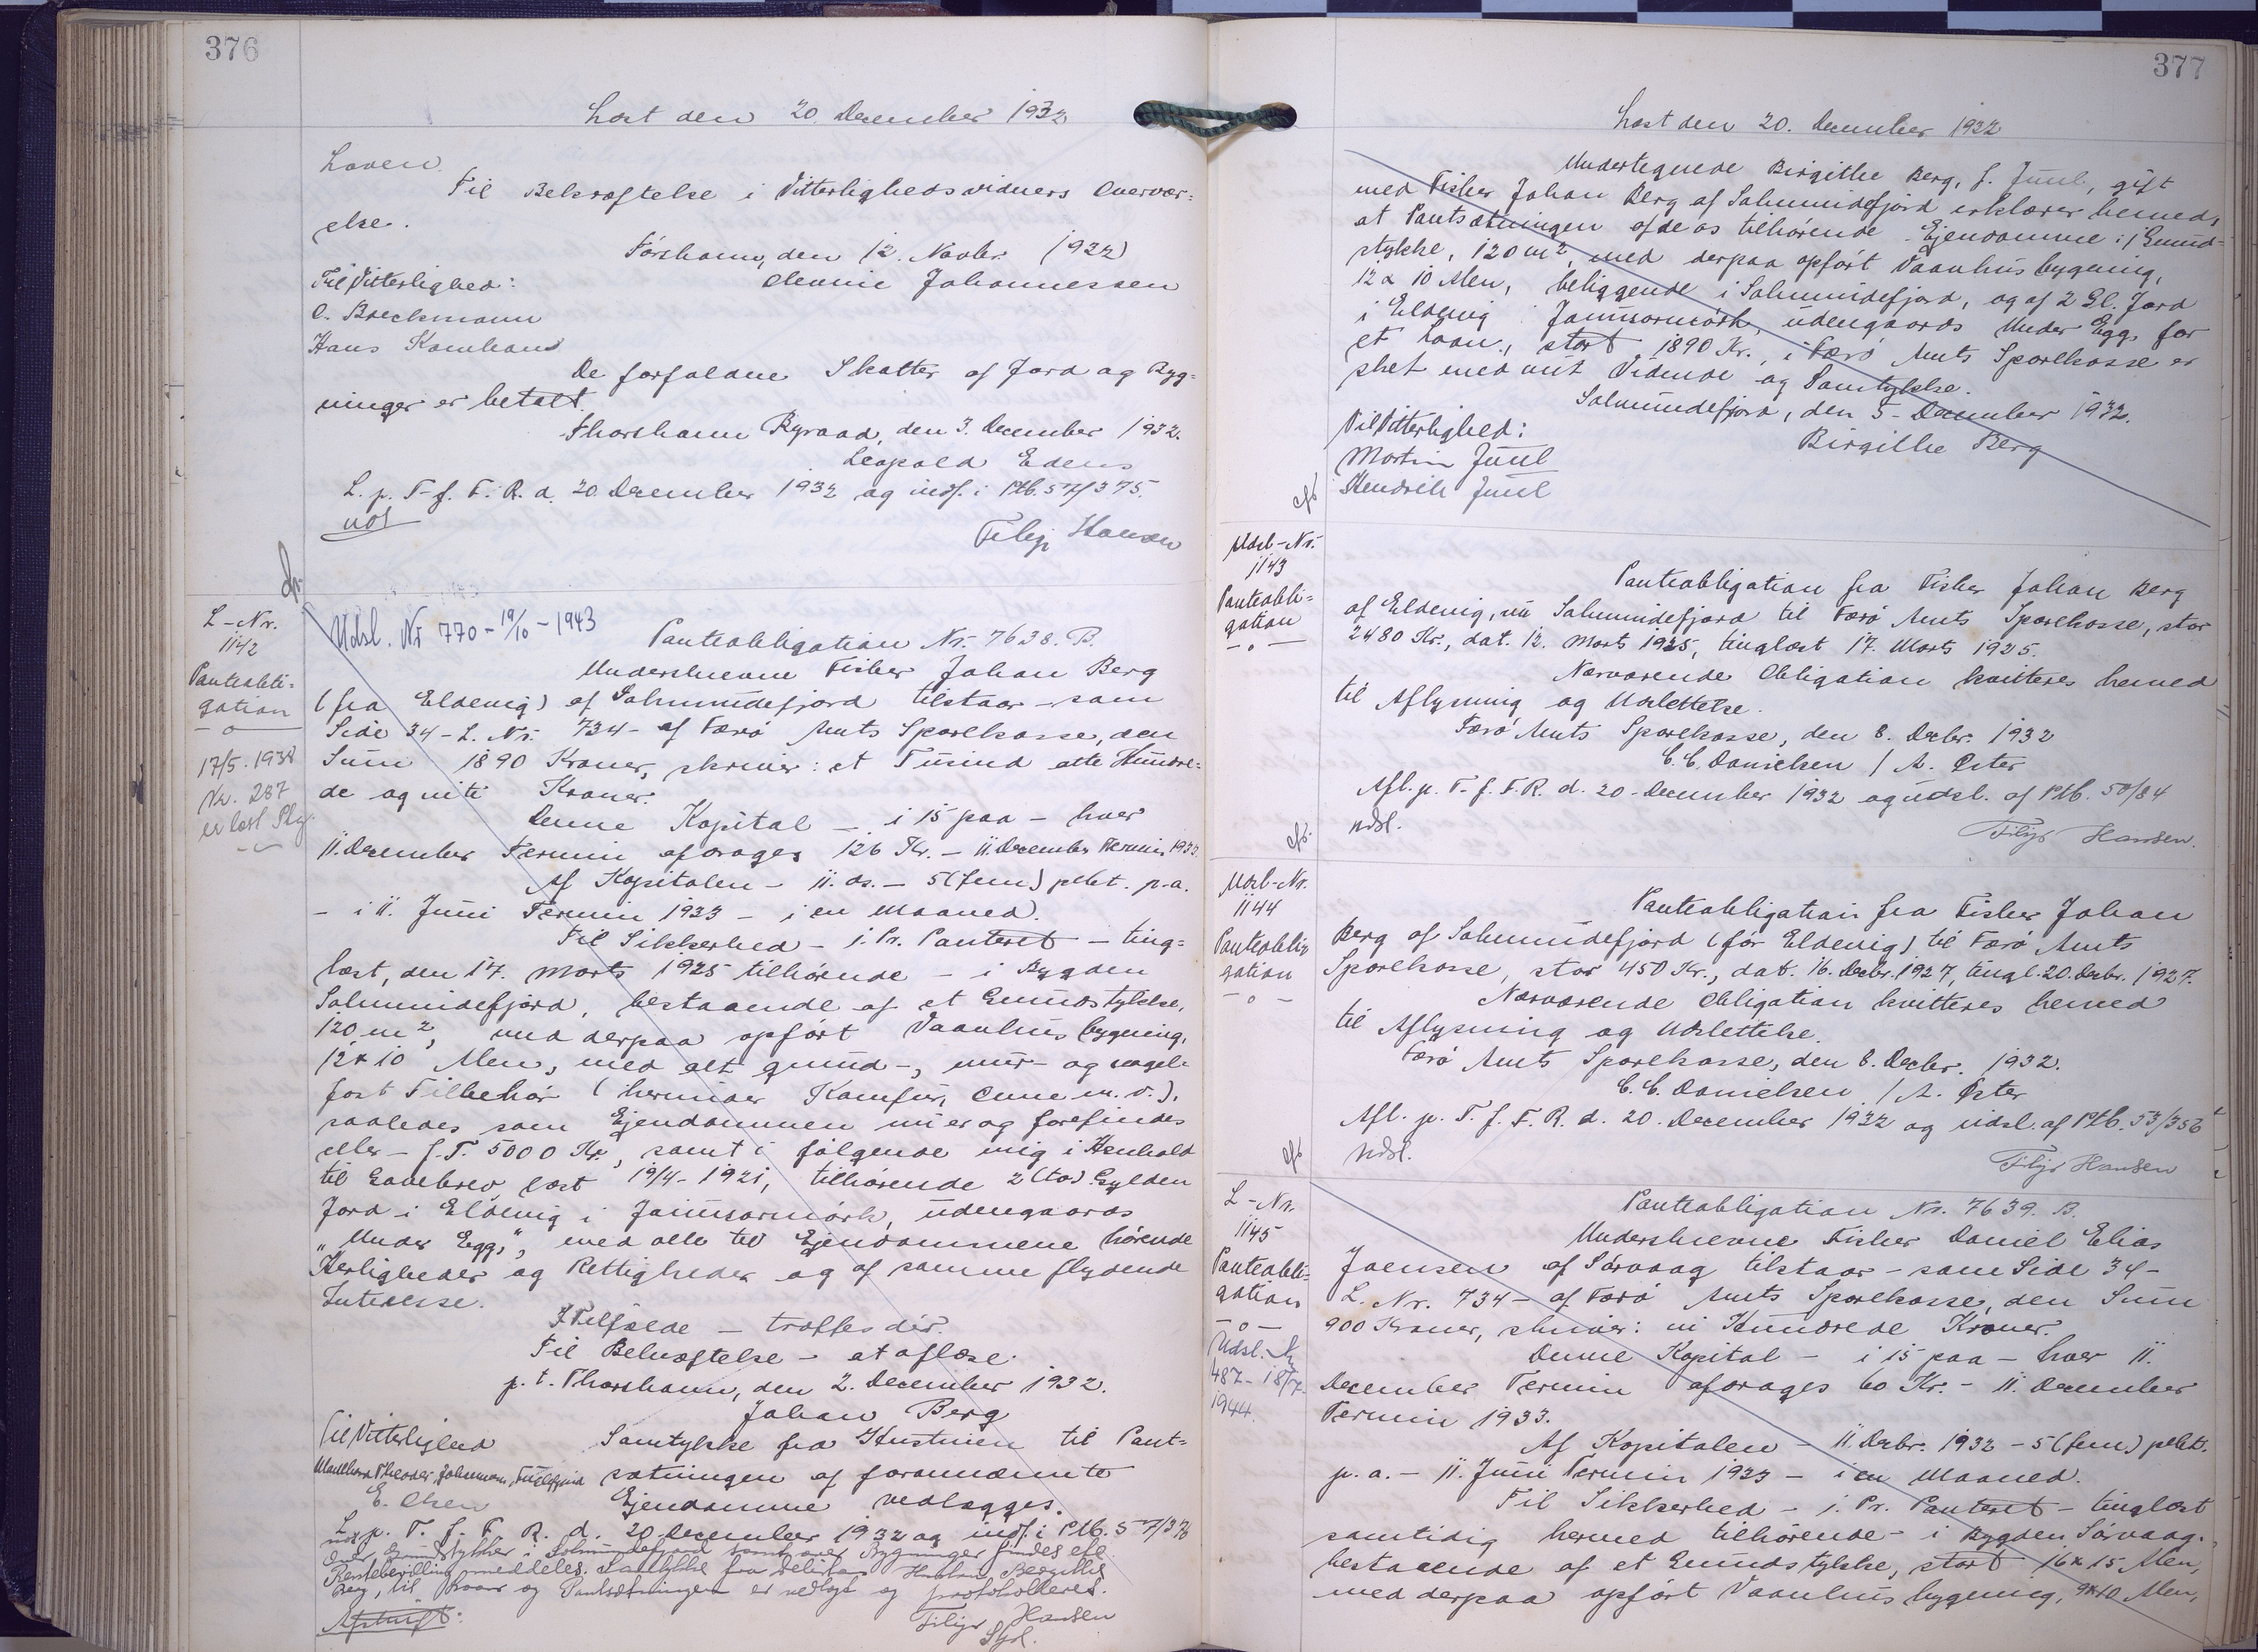 376
Læst den 20. December 1932
Loven.
Til Bekræftelse i Vitterlighedsvidners Overvær=
else.
Tórshavn, den 12. Novbr. 1932
Til Vitterlighed:
Johannessen
O. Brockmann
Hans Kamban
De forfaldne Skatter af Jord og Byg=
ninger er betalt.
Thorshavn Byraad, den 3. December 1932.
Leopold Edens
L. p. T. f. F. R. d. 20. December 1932 og indf. i Ptb. 57/375.
Filip Hansen
L-Nr.
1142
Panteobli=
gation
—o—
17/5. 1938
Nr. 287
er læst
Udsl. Nr 770 - 19/10 - 1943
Panteobligation Nr. 7638. B.
Underskrevne Fisker Johan Berg
(fra Eldevig) af Salmundefjord tilstaar - som
Side 34 - L. Nr. 734 - af Færø Amts Sparekasse, den
Sum 1890 Kroner, skriver: et Tusind otte Hundre=
de og niti Kroner.
Denne Kapital - i 15 paa - hver
11. December Termin afdrages 126 Kr. - 11. December Termin 1933.
Af Kapitalen - 11. ds. - 5 (fem) pCt. p.a.
- i 11. Juni Termin 1933 - i en Maaned.
Til Sikkerhed - 1. Pr. Panteret - ting=
læst, den 17. Marts 1925 tilhørende - i Bygden
Salmundefjord, bestaaende af et Grundstykke,
120 m², med derpaa opført Vaanhusbygning,
12 x 10 Alen, med alt grund-, mur- og nagel-
fast Tilbehør (herunder Komfur, Ovne m.v.),
saaledes som Ejendommen nu er og forefindes
eller - f. T. 5000 Kr., samt i følgende mig i Henhold
til Gavebrev læst 19/4 - 1921, tilhørende 2 (to) Gylden
Jord i Eldevig i Jannsarmørk, udengaards
"Under Egg", med alle til Ejendommene hørende
Herligheder og Rettigheder og af samme flydende
Interesse.
I Tilfælde - træffes dér.
Til Bekræftelse - at aflæse.
p. t. Thorshavn, den 2. December 1932.
Johan Berg
Til Vitterlighed
Samtykke fra Hustruen til Pant=
sætningen af forannævnte
E. Olsen
Ejendomme vedlægges.
L. p. T. f. F. R. d. 20. December 1932 og indf. i Ptb. 57/376
Grundstykket i Salmundefjord samt Bygninger findes ell
Rentebevilling meddeles. Samtykke fra Debitors Hustru Bergitte
Berg, til Laan og Pantsætningen er vedlagt og protokolleret.
Afskrift:
Filip Hansen
377
Læst den 20. December 1932
Undertegnede Birgithe Berg, f. Juul, gift
med Fisker Johan Berg af Salmundefjord erklærer hermed,
at Pantsætningen af de os tilhørende Ejendomme: 1 Grund=
stykke, 120 m², med derpaa opført Vaanhusbygning,
12 x 10 Alen, beliggende i Salmundefjord, og af 2 Gl. Jord
i Eldevig Jannsarmørk, udengaards Under Egg, for
et Laan, stort 1890 Kr., i Færø Amts Sparekasse er
sket med mit Vidende og Samtykke.
Salmundefjord, den 5. December 1932.
Til Vitterlighed:
Birgithe Berg
Martin Juul
Hendrik Juul
Udsl-Nr.
1143
Panteobli=
gation
—o—
Panteobligation fra Fisker Johan Berg
af Eldevig, nu Salmundefjord til Færø Amts Sparekasse, stor
2480 Kr., dat. 12. Marts 1925, tinglæst 17. Marts 1925.
Nærværende Obligation kvitteres hermed
til Aflysning og Udslettelse.
Færø Amts Sparekasse, den 8. Decbr. 1932
C. C. Danielsen / A. Øster
Afl. p. T. f. F. R. d. 20. December 1932 og udsl. af Ptb. 50/84
udsl.
Filip Hansen.
Udsl-Nr.
1144
Panteobli=
gation
—o—
Panteobligation fra Fisker Johan
Berg af Salmundefjord (før Eldevig) til Færø Amts
Sparekasse, stor 450 Kr., dat. 16. Decbr. 1927, tingl. 20. Decbr. 1927.
Nærværende Obligation kvitteres hermed
til Aflysning og Udslettelse.
Færø Amts Sparekasse, den 8. Decbr. 1932.
C. C. Danielsen / A. Øster
Afl. p. T. f. F. R. d. 20. December 1932 og udsl. af Ptb. 53/356
udsl.
Filip Hansen
L-Nr.
1145
Panteobli=
gation
—o—
Udsl. Nr
487 - 18/7-
1944.
Panteobligation Nr. 7639. B.
Underskrevne Fisker Daniel Elias
Joensen af Sørvaag tilstaar - som Side 34 -
L. Nr. 734 - af Færø Amts Sparekasse, den Sum
900 Kroner, skriver: ni Hundrede Kroner.
Denne Kapital - i 15 paa - hver 11.
December Termin afdrages 60 Kr. - 11. December
Termin 1933.
Af Kapitalen - 11. Decbr. 1932 - 5 (fem) pCt.
p. a. - 11. Juni Termin 1933 - i en Maaned.
Til Sikkerhed - 1. Pr. Panteret - tinglæst
samtidig hermed tilhørende - i Bygden Sørvaag.
bestaaende af et Grundstykke, stort 16 x 15 Alen,
med derpaa opført Vaanhusbygning, 9 x 10 Alen,